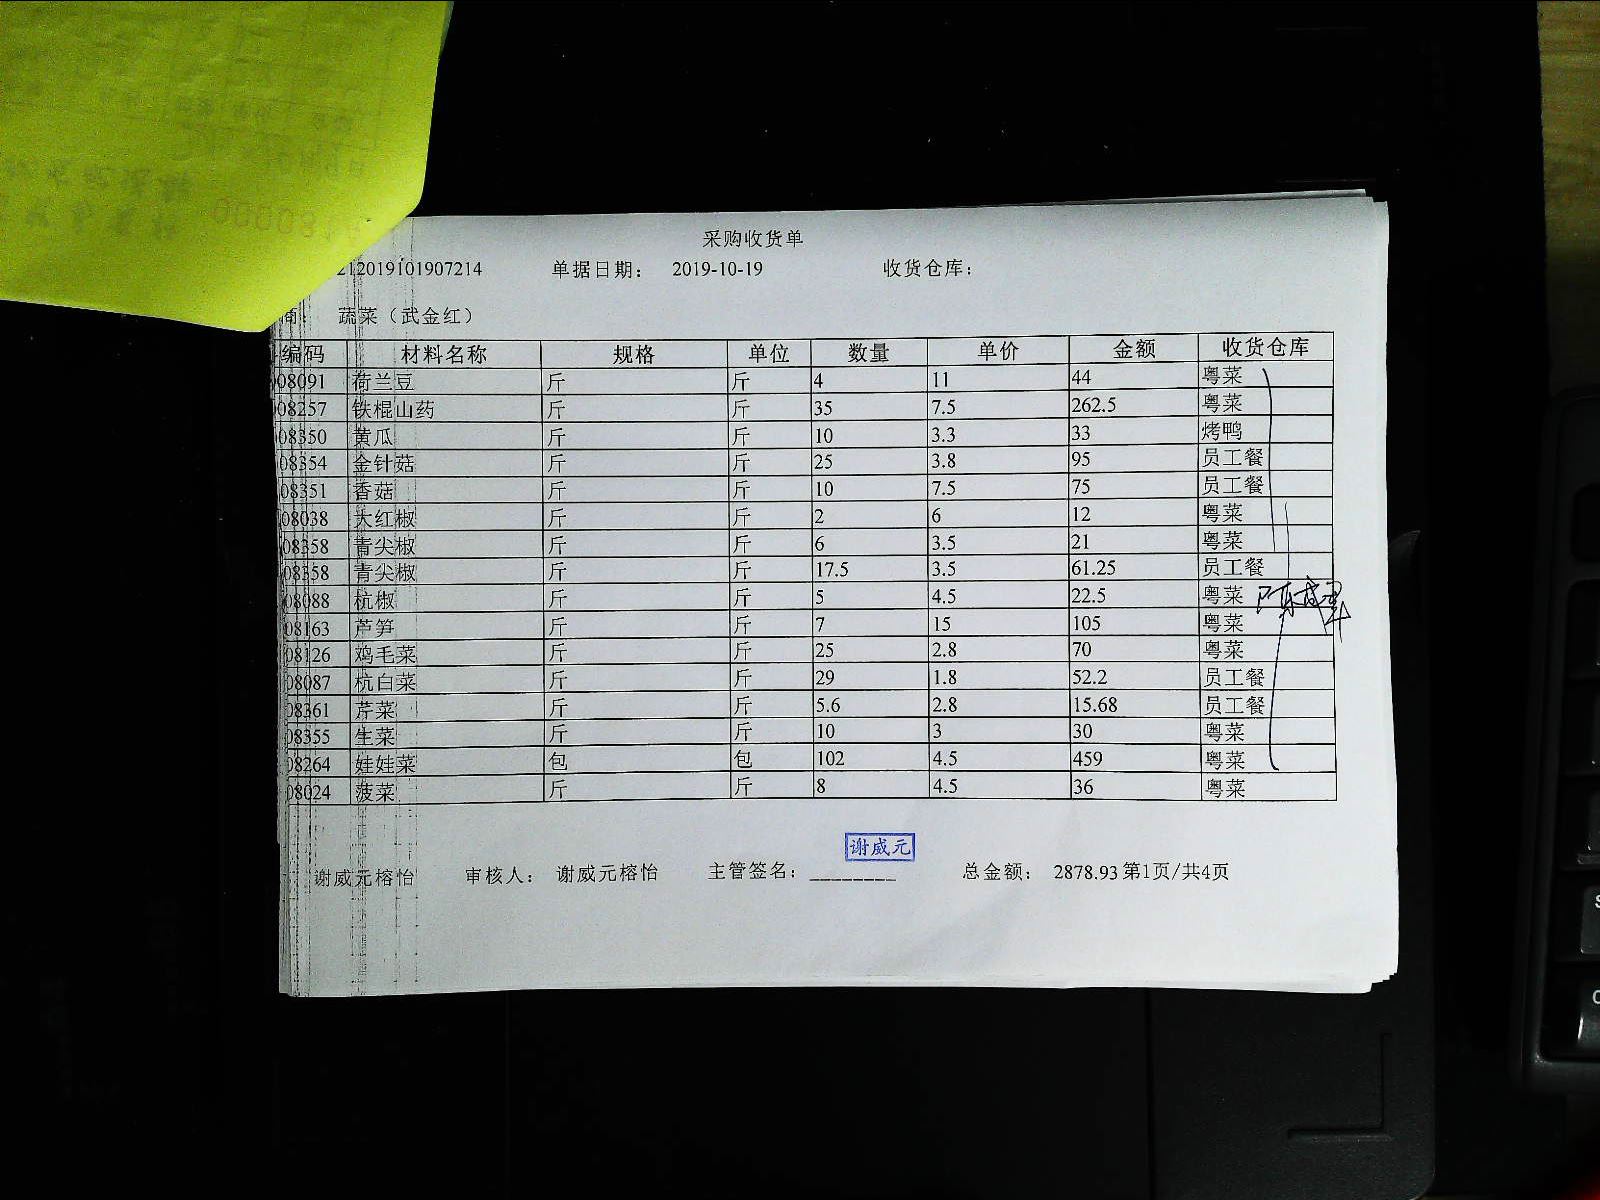 采购收货单
212019101907214 单据日期： 2019-10-19 收货仓库：
商： 蔬菜（武金红）
编码 材料名称 规格 单位 数量 单价 金额 收货仓库
08091 荷兰豆 斤 斤 4 11 44 粤菜
08257 铁棍山药 斤 斤 35 7.5 262.5 粤菜
08350 黄瓜 斤 斤 10 3.3 33 烤鸭
08354 金针菇 斤 斤 25 3.8 95 员工餐
08351 香菇 斤 斤 10 7.5 75 员工餐
08038 大红椒 斤 斤 2 6 12 粤菜
08358 青尖椒 斤 斤 6 3.5 21 粤菜
08358 青尖椒 斤 斤 17.5 3.5 61.25 员工餐
08088 杭椒 斤 斤 5 4.5 22.5 粤菜
08163 芦笋 斤 斤 7 15 105 粤菜
08126 鸡毛菜 斤 斤 25 2.8 70 粤菜
08087 杭白菜 斤 斤 29 1.8 52.2 员工餐
08361 芹菜 斤 斤 5.6 2.8 15.68 员工餐
08355 生菜 斤 斤 10 3 30 粤菜
08264 娃娃菜 包 包 102 4.5 459 粤菜
08024 菠菜 斤 斤 8 4.5 36 粤菜
谢威元
谢威元榕怡 审核人： 谢威元榕怡 主管签名：________ 总金额： 2878.93 第1页/共4页